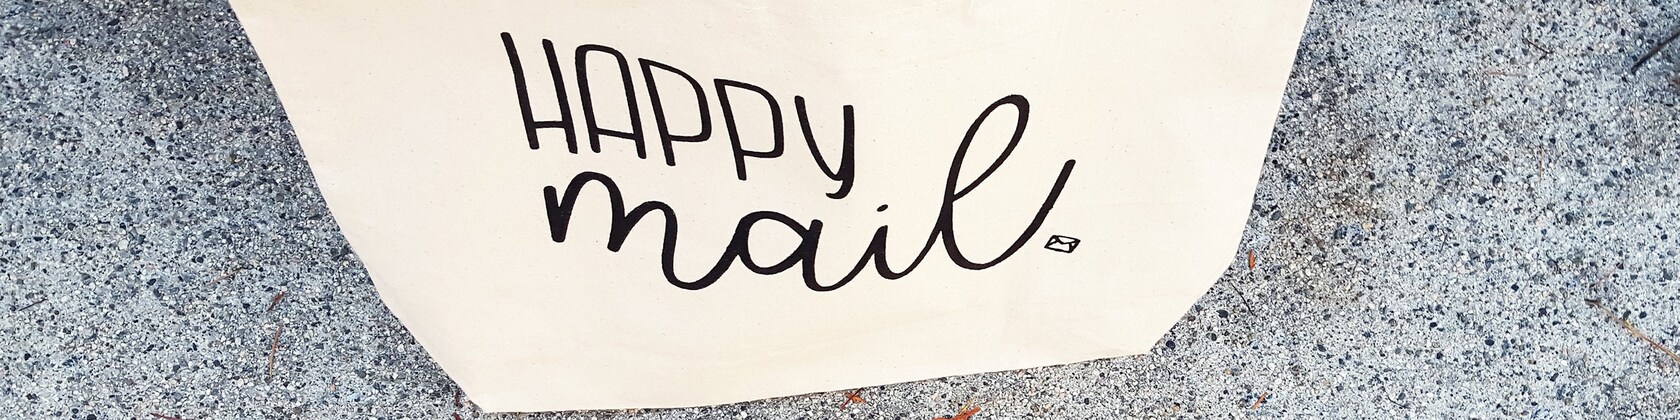 HAPPY
mail.